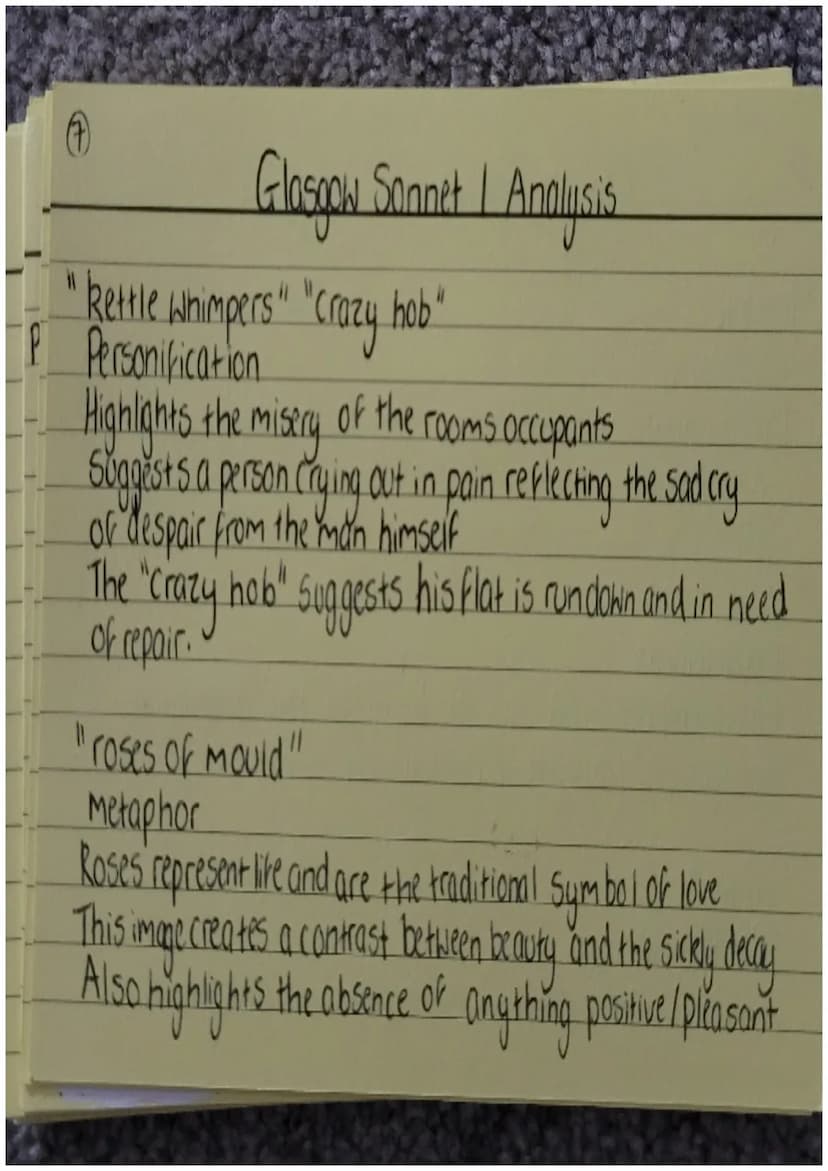 7
Glasgow Sonnet 1 Analysis
"kettle whimpers" "crazy hob"
P
Personification
Highlights the misery of the rooms occupants
Suggests a person crying out in pain reflecting the sad cry
of despair from the man himself
The "crazy hob" suggests his flat is rundown and in need
of repair.
"roses of mould"
Metaphor
Roses represent life and are the traditional symbol of love
This image creates a contrast between beauty and the sickly decay
Also highlights the absence of anything positive/pleasant